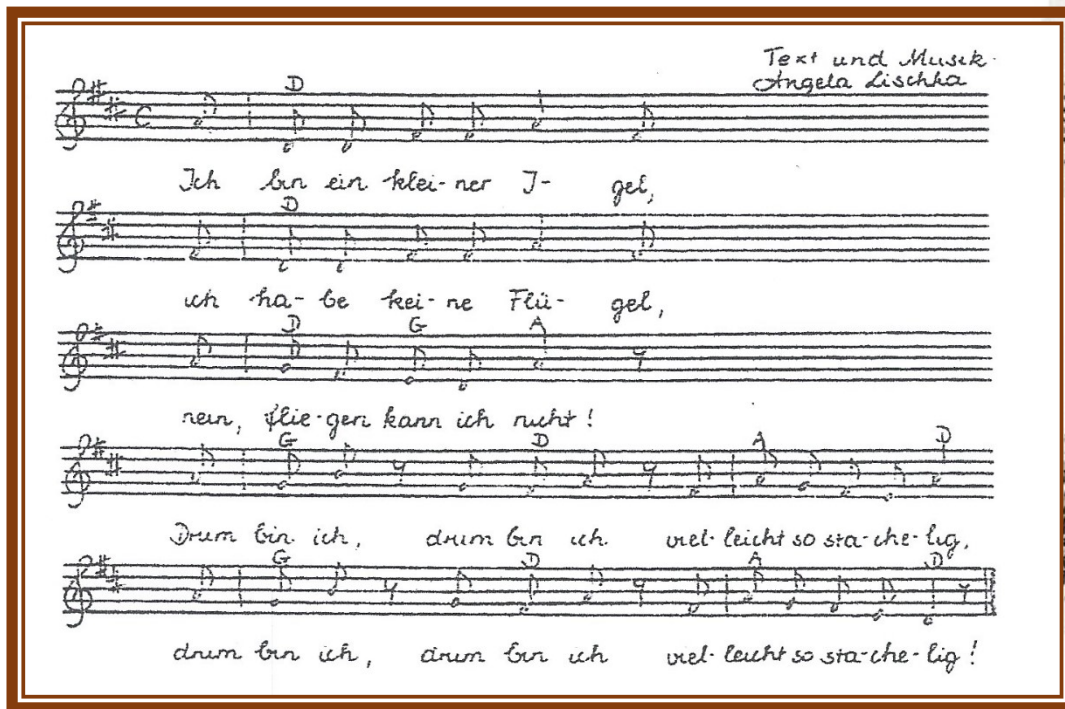 Text und Musik
Angela Lischka
D
Ich bin ein klei-ner I- gel,
D
ich ha- be kei-ne Flü- gel,
D G A
nein, flie-gen kann ich nicht!
G D A D
Drum bin ich, drum bin ich viel-leicht so sta-che-lig,
G D A D
drum bin ich, drum bin ich viel-leicht so sta-che-lig!